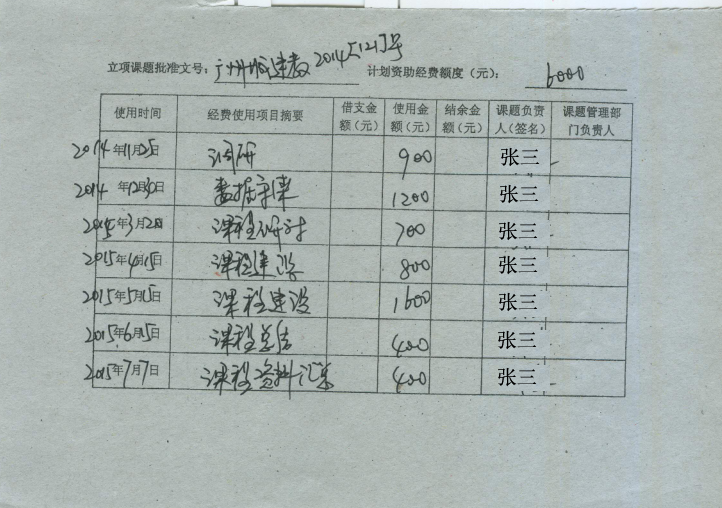 立项课题批准文号：广州城建教2014[121]号 计划资助经费额度（元）： 6000
使用时间 经费使用项目摘要 借支金额（元） 使用金额（元） 结余金额（元） 课题负责人（签名） 课题管理部门负责人
2014年11月25日 调研 900 张三
2014年12月30日 1200 张三
2015年3月20日 课程研讨 700 张三
2015年4月15日 课程建设 800 张三
2015年5月15日 课程建设 1600 张三
2015年6月15日 课程总结 400 张三
2015年7月7日 课程资料汇总 400 张三